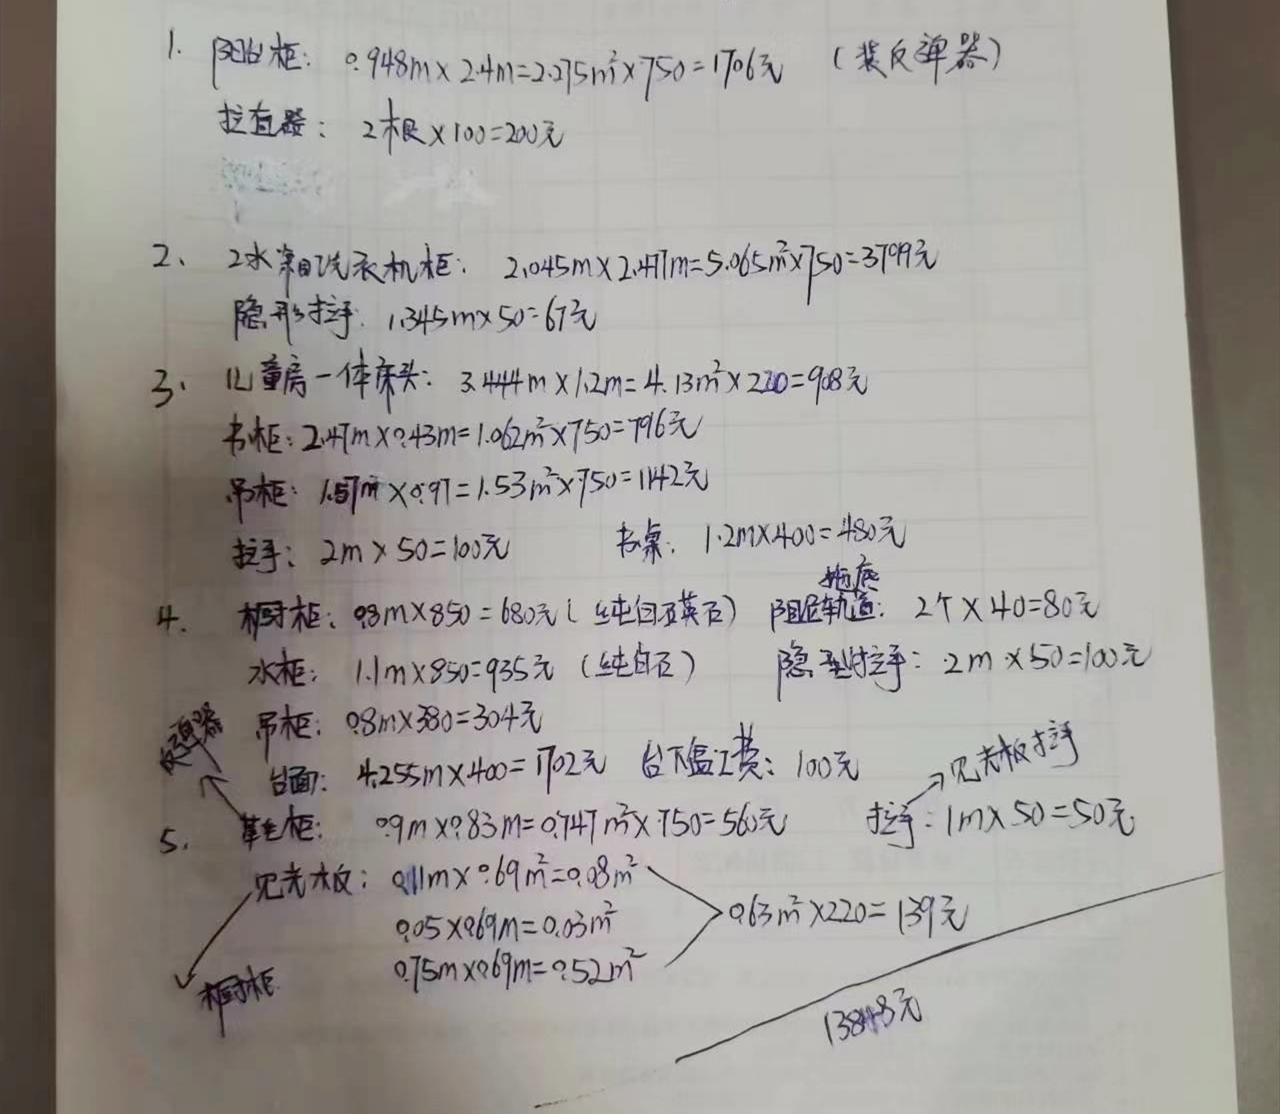 1. 阳台柜: 0.948m×2.4m=2.275m²×750=1706元 (装反弹器)
拉直器: 2根×100=200元
2、 2水 洗衣机柜: 2.045m×2.477m=5.065m²×750=3799元
隐形拉手: 1.345m×50=67元
3、 儿童房一体床头: 3.444m×1.2m=4.13m²×220=908元
书柜: 2.47m×0.43m=1.062m²×750=796元
吊柜: 1.57m×0.97=1.53m²×750=1142元
拉手: 2m×50=100元 书桌: 1.2m×400=480元
拖底
4. 橱柜: 0.8m×850=680元(纯白石英石) 阻尼轨道: 2个×40=80元
水柜: 1.1m×850=935元 (纯白石) 隐型拉手: 2m×50=100元
反弹器 吊柜: 0.8m×380=304元
台面: 4.255m×400=1702元 台下盆工费: 100元 见光板拉手
5、 鞋柜: 0.9m×0.83m=0.747m²×750=560元 拉手: 1m×50=50元
见光板: 0.11m×0.69m²=0.08m²
0.05×0.69m=0.03m² 0.63m²×220=139元
0.75m×0.69m=0.52m²
橱柜
13848元